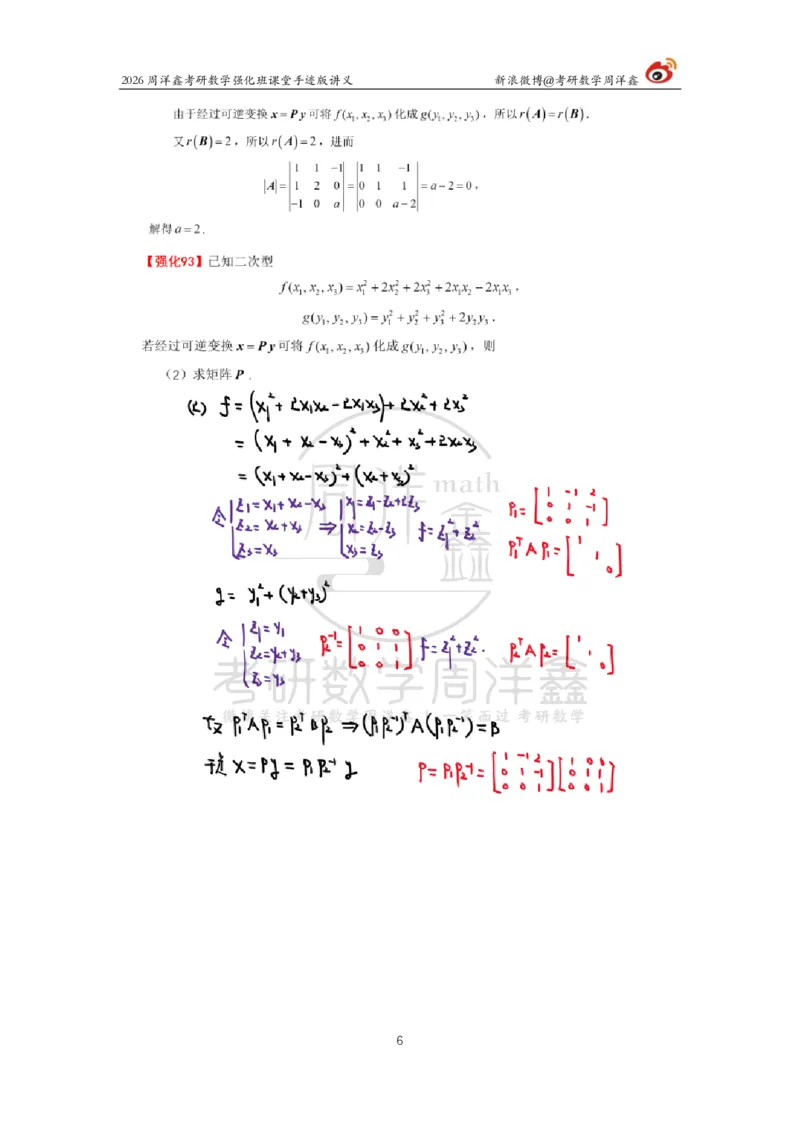 2026 周洋鑫考研数学强化班课堂手迹版讲义 新浪微博@考研数学周洋鑫
由于经过可逆变换 x = Py 可将 f(x₁, x₂, x₃) 化成 g(y₁, y₂, y₃)，所以 r(A) = r(B).
又 r(B) = 2，所以 r(A) = 2，进而
|A| = |1 1 -1; 1 2 0; -1 0 a| = |1 1 -1; 0 1 1; 0 0 a-2| = a-2 = 0，
解得 a = 2.
【强化93】已知二次型
f(x₁, x₂, x₃) = x₁² + 2x₂² + 2x₃² + 2x₁x₂ - 2x₁x₃，
g(y₁, y₂, y₃) = y₁² + y₂² + y₃² + 2y₂y₃.
若经过可逆变换 x = Py 可将 f(x₁, x₂, x₃) 化成 g(y₁, y₂, y₃)，则
（2）求矩阵 P.
(2) f = (x₁² + 2x₁x₂ - 2x₁x₃) + 2x₂² + 2x₃²
= (x₁ + x₂ - x₃)² + x₂² + x₃² + 2x₂x₃
= (x₁ + x₂ - x₃)² + (x₂ + x₃)²
令 { z₁ = x₁ + x₂ - x₃ { x₁ = z₁ - z₂ + 2z₃ P₁ = [1 -1 2; 0 1 -1; 0 0 1]
z₂ = x₂ + x₃ ⇒ x₂ = z₂ - z₃ f = z₁² + z₂²
z₃ = x₃ x₃ = z₃ P₁ᵀAP₁ = [1 1 0]
g = y₁² + (y₂ + y₃)²
令 { z₁ = y₁
z₂ = y₂ + y₃ P₂⁻¹ = [1 0 0; 0 1 1; 0 0 1] f = z₁² + z₂². P₂ᵀAP₂ = [1 1 0]
z₃ = y₃
考研数学周洋鑫
周洋鑫 math
故 P₁ᵀAP₁ = P₂ᵀBP₂ ⇒ (P₁P₂⁻¹)ᵀA(P₁P₂⁻¹) = B
于是 x = Py = P₁P₂⁻¹y P = P₁P₂⁻¹ = [1 -1 2; 0 1 -1; 0 0 1][1 0 0; 0 1 1; 0 0 1]
6